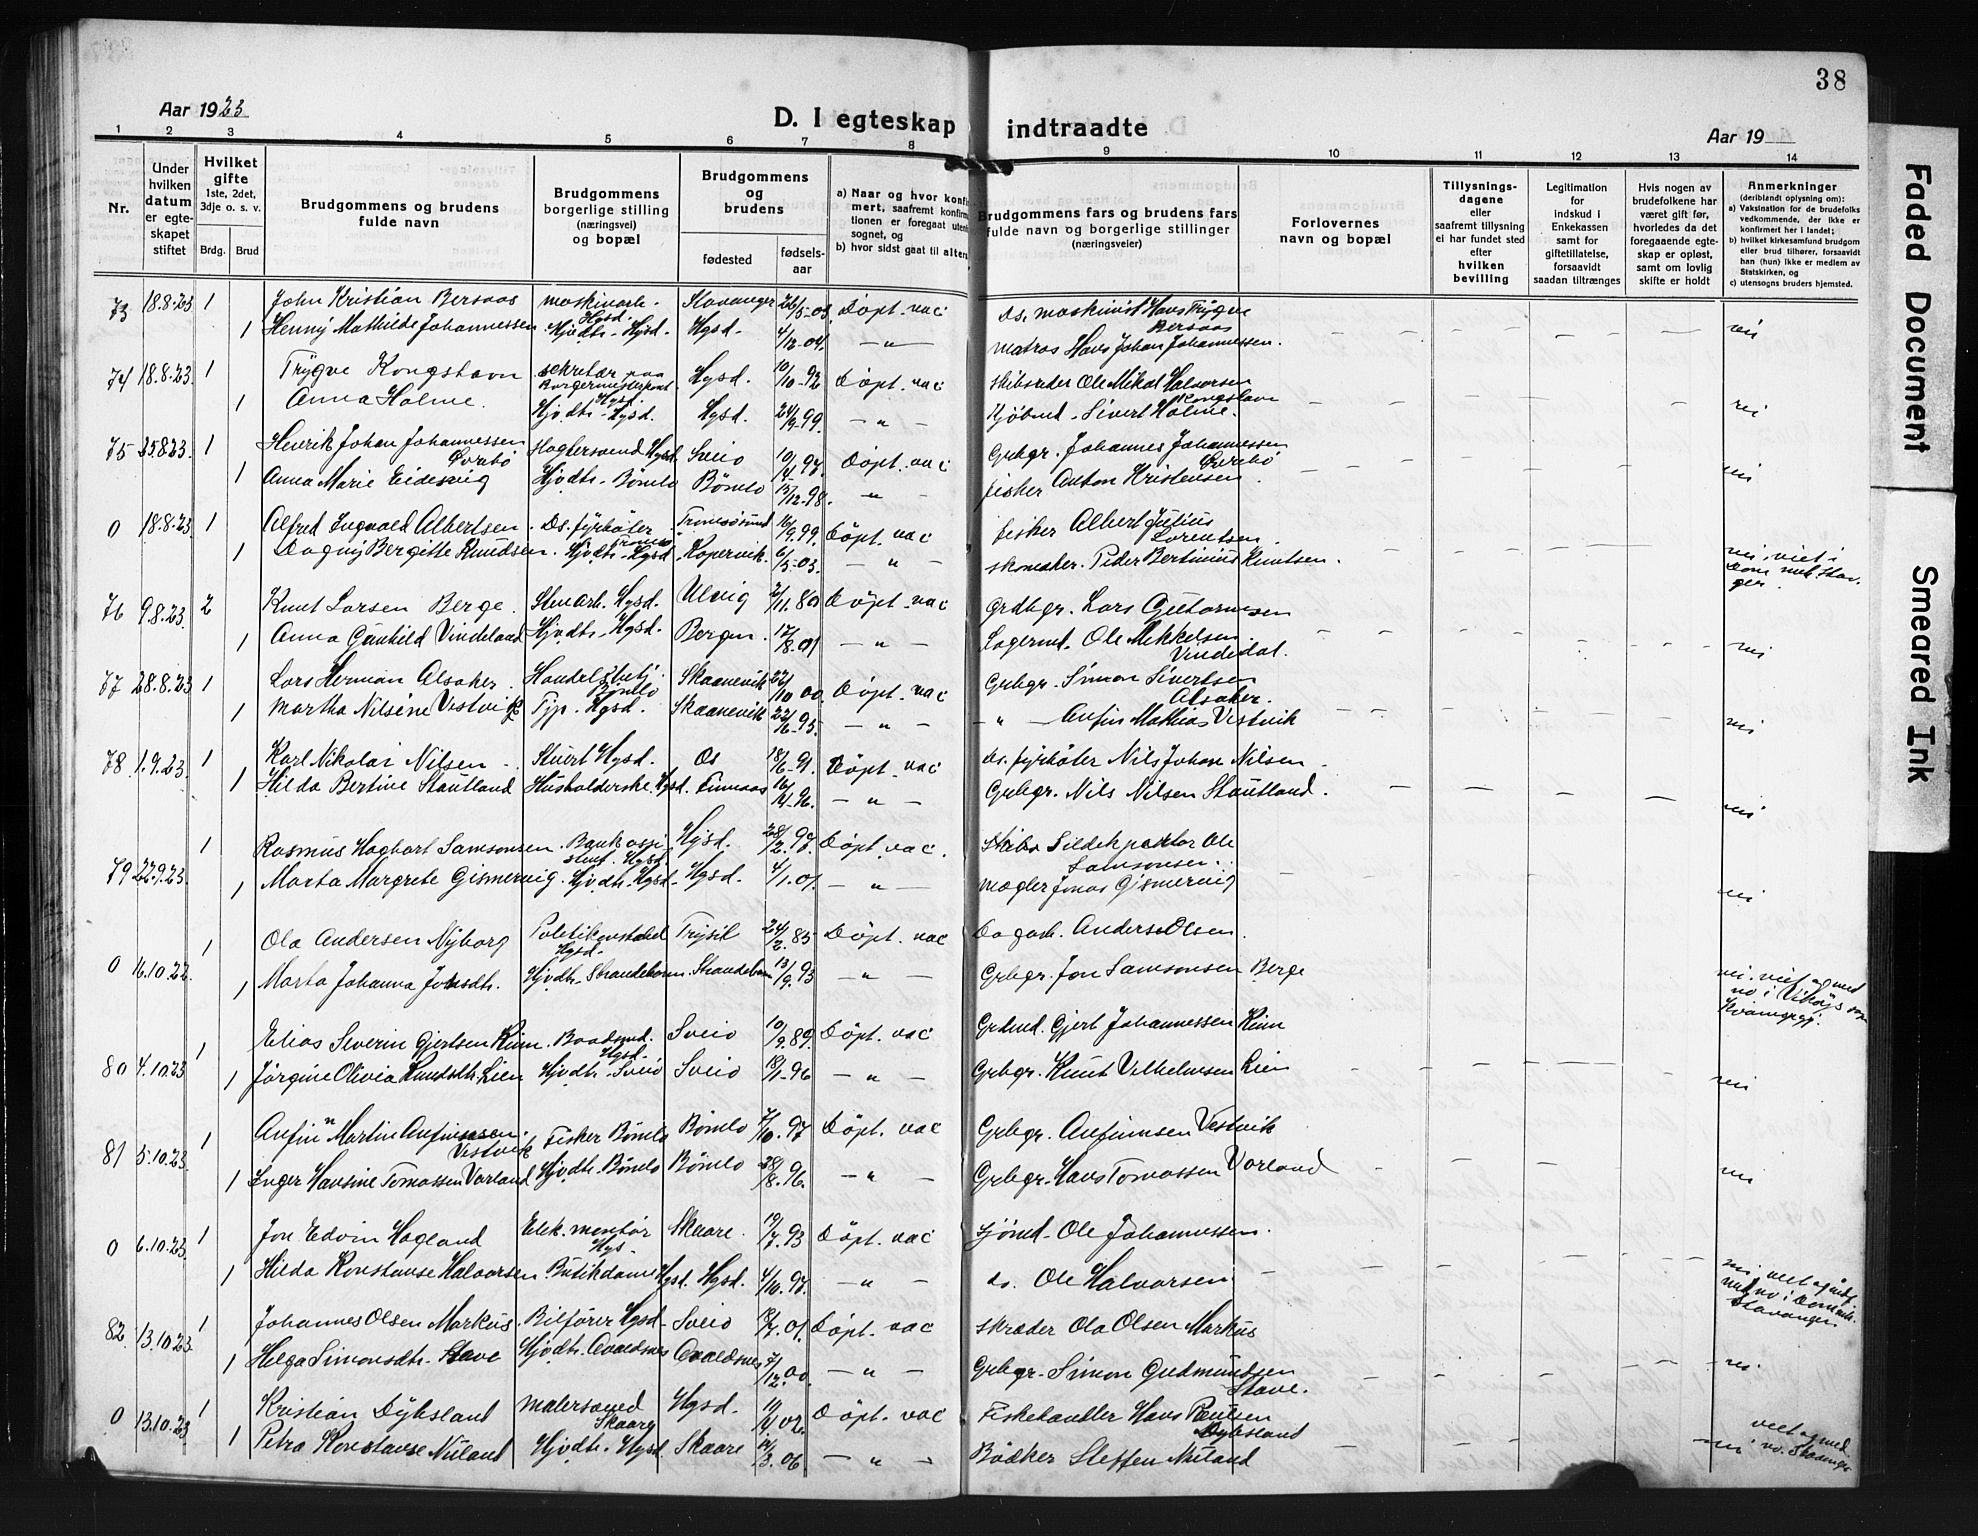 38
Aar 1923
D. I egteskap indtraadte
Aar 19
1 2 3 4 5 6 7 8 9 10 11 12 13 14
Nr.
Under hvilken datum er egteskapet stiftet
Hvilket gifte 1ste, 2det, 3dje o. s. v.
Brdg. Brud
Brudgommens og brudens fulde navn
Brudgommens borgerlige stilling (næringsvei) og bopæl
Brudgommens og brudens
fødested
fødselsaar
a) Naar og hvor konfir
mert, saafremt konfirma
tionen er foregaat uten
sognet, og
b) hvor sidst gaat til alters
Brudgommens fars og brudens fars fulde navn og borgerlige stillinger (næringsveier)
Forlovernes navn og bopæl
Tillysningsdagene eller saafremt tillysning ei har fundet sted efter hvilken bevilling
Legitimation for indskud i Enkekassen samt for giftetillatelse, forsaavidt saadan tiltrænges
Hvis nogen av brudefolkene har været gift før, hvorledes da det foregaaende egteskap er opløst, samt om lovlig skifte er holdt
Anmerkninger (deriblandt oplysning om): a) Vaksination for de brudefolks vedkommende, der ikke er konfirmert her i landet; b) hvilket kirkesamfund brudgom eller brud tilhører, forsaavidt han (hun) ikke er medlem av Statskirken, og c) utensogns bruders hjemsted.
73 18.8.23 1 John Kristian Bersaas maskinarb. Hgsd. Stavanger 26/5-03. Döpt. vac ds. maskinist Hans Trygve Bersaas
1 Henny Mathilde Johannessen Hjvdtr - Hgsd. Hgsd. 4/12-04. — " — matros Hans Johan Johannessen. nei
74 18.8.23 1 Trygve Kongshavn sekretær paa Borgermesterkont. Hgsd. Hgsd. 10/10-92 Döpt. vac skibsreder Ole Mikal Halvorsen Kongshavn
1 Anna Holme. Hjvdtr - Hgsd. Hgsd. 24/9-99. — " — Kjöbmd. Sivert Holme. nei
75 25.8.23. 1 Henrik Johan Johannessen Övrebö Slagtersvend Hgsd. Sveio 10/4-97. Döpt. vac Grbgr. Johannes Johannessen Övrebö
1 Anna Marie Eidesvig Hjvdtr. Bömlo Bömlo 13/12-98. — " — fisker Anton Kristensen nei
0 18.8.23. 1 Alfred Ingvald Albertsen. Ds. fyrböter Tromsö Tromsösund 16/9.99. Döpt. vac fisker Albert Julius Lorentsen.
1 Dagny Bergitte Knudsen. Hjvdtr - Hgsd. Kopervik. 6/5-03. — " — skomaker. Peder Bertinius Knutsen. nei, viet i
76 9.8.23. 2 Knut Larsen Berge. Stenarb. Hgsd. Ulvig 2/11.80 Döpt. vac Grdbgr. Lars Guttormsen
1 Anna Gunhild Vindeland Hjvdtr - Hgsd. Bergen. 17/8-01 — " — Lagermd. Ole Mikkelsen Vindedal. nei
77 28.8.23 1 Lars Herman Alsaker. Handelsbetj. Bömlo Skaanevik 22/10 00. Döpt. vac Grbgr. Simon Sivertsen Alsaker.
1 Martha Nilsine Vestvik Typ. Hgsd. Skaanevik 22/6-95. — " — - " - Anfin Mathias Vestvik nei
78 1.9.23. 1 Karl Nikolai Nilsen Stuert Hgsd. Os 18/6-91. Döpt. vac ds. fyrböter Nils Johan Nilsen
1 Hilda Bertine Stautland Husholderske. Hgsd. Finnaas 16/4-96. — " — Grbgr. Nils Nilsen Stautland. nei
79 22.9.23. 1 Rasmus Hagbart Samsonsen. Bankassistent. Hgsd. Hgsd. 28/2-97. Döpt. vac. Sildexportör Ole Samsonsen.
1 Marta Margrete Gismervig. Hjvdtr. Hgsd. Hgsd. 4/1.01. — " — Mægler Jonas Gismervig nei
0 16.10.22. 1 Ola Andersen Nyborg Politikonstabel Hgsd. Trysil 24/2.85 Döpt. vac Dagarb. Anders Olsen.
1 Marta Johanna Jonsdtr. Hjvdtr. Strandebarm. Strandebarm 13/9.93 — " — Grbgr. Jon Samsonsen Berge nei. viet
80 4.10.23 1 Elias Severin Gjertsen Rinn. Baadsmd. Hgsd. Sveio 10/9.89. Döpt. vac Grdmd. Gjert Johannessen Rinn
1 Jörgine Olivia Knudsdtr. Lien Hjvdtr. Sveio Sveio 18/1-96 — " — Grbgr. Knut Vilhelmsen Lien nei
81 5.10.23. 1 Anfinn Martin Anfinnsen. Vestvik Fisker Bömlo Bömlo 7/10.97 Döpt. vac Grbgr. Anfinnsen Vestvik
1 Inger Hansine Tomassen Vorland Hjvdtr. Bömlo Bömlo 28/8.96. — " — Grbgr. Hans Tomassen Vorland nei
0 6.10.23. 1 Jon Edvin Hagland Elek. montör Hgs. Skaare. 19/7.93 Döpt. vac Sjömd. Ole Johannessen.
1 Hilda Konstanse Halvorsen Butikdame Hgsd. Hgsd. 4/10.97. — " — ds. Ole Halvorsen
82 13.10.23. 1 Johannes Olsen Markus. Bilförer Hgsd. Sveio 12/7.01. Döpt. vac skræder Ola Olsen Markus
1 Helga Simonsdtr. Stave Hjvdtr. Avaldsnes Avaldsnes 7/12.00. — " — Grbgr. Simon Gudmundsen Stave. nei.
0 13.10.23 1 Kristian Dybsland Malersvend Skaare Hgsd. 19/4 02. Döpt. vac Fiskehandler Hans Paulsen Dybsland
1 Petra Konstanse Nuland Hjvdtr. Hgsd. Skaare 14/3.06. — " — Bödker Steffen Nuland nei
Faded Document
Smeared Ink